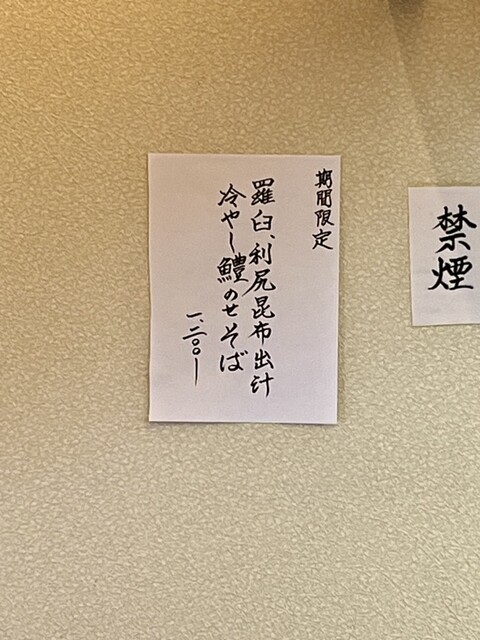 期間限定
羅臼、利尻昆布出汁
冷やし鱧のせそば
一、二〇〇ー
禁煙